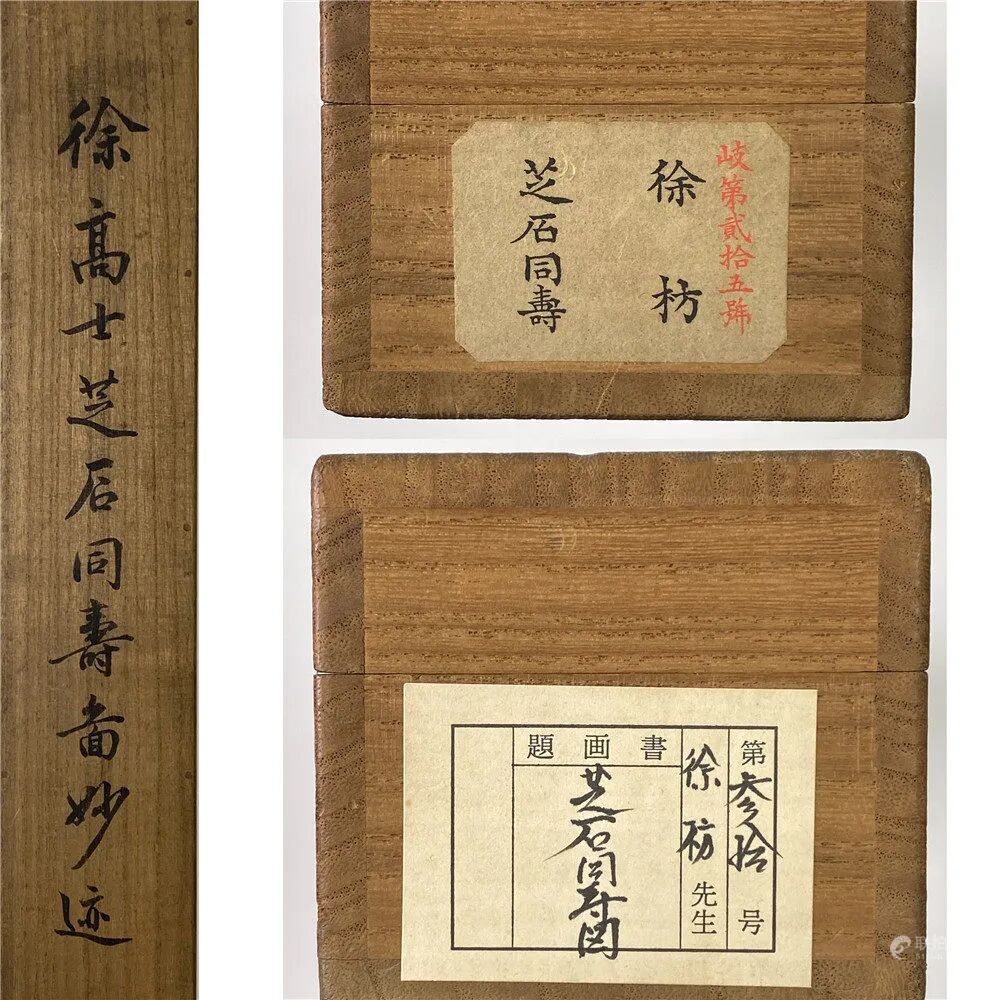 徐高士芝石同壽畫妙迹
岐第貳拾五號
徐枋
芝石同壽
第参拾号
徐枋先生
書画題
芝石同寿図